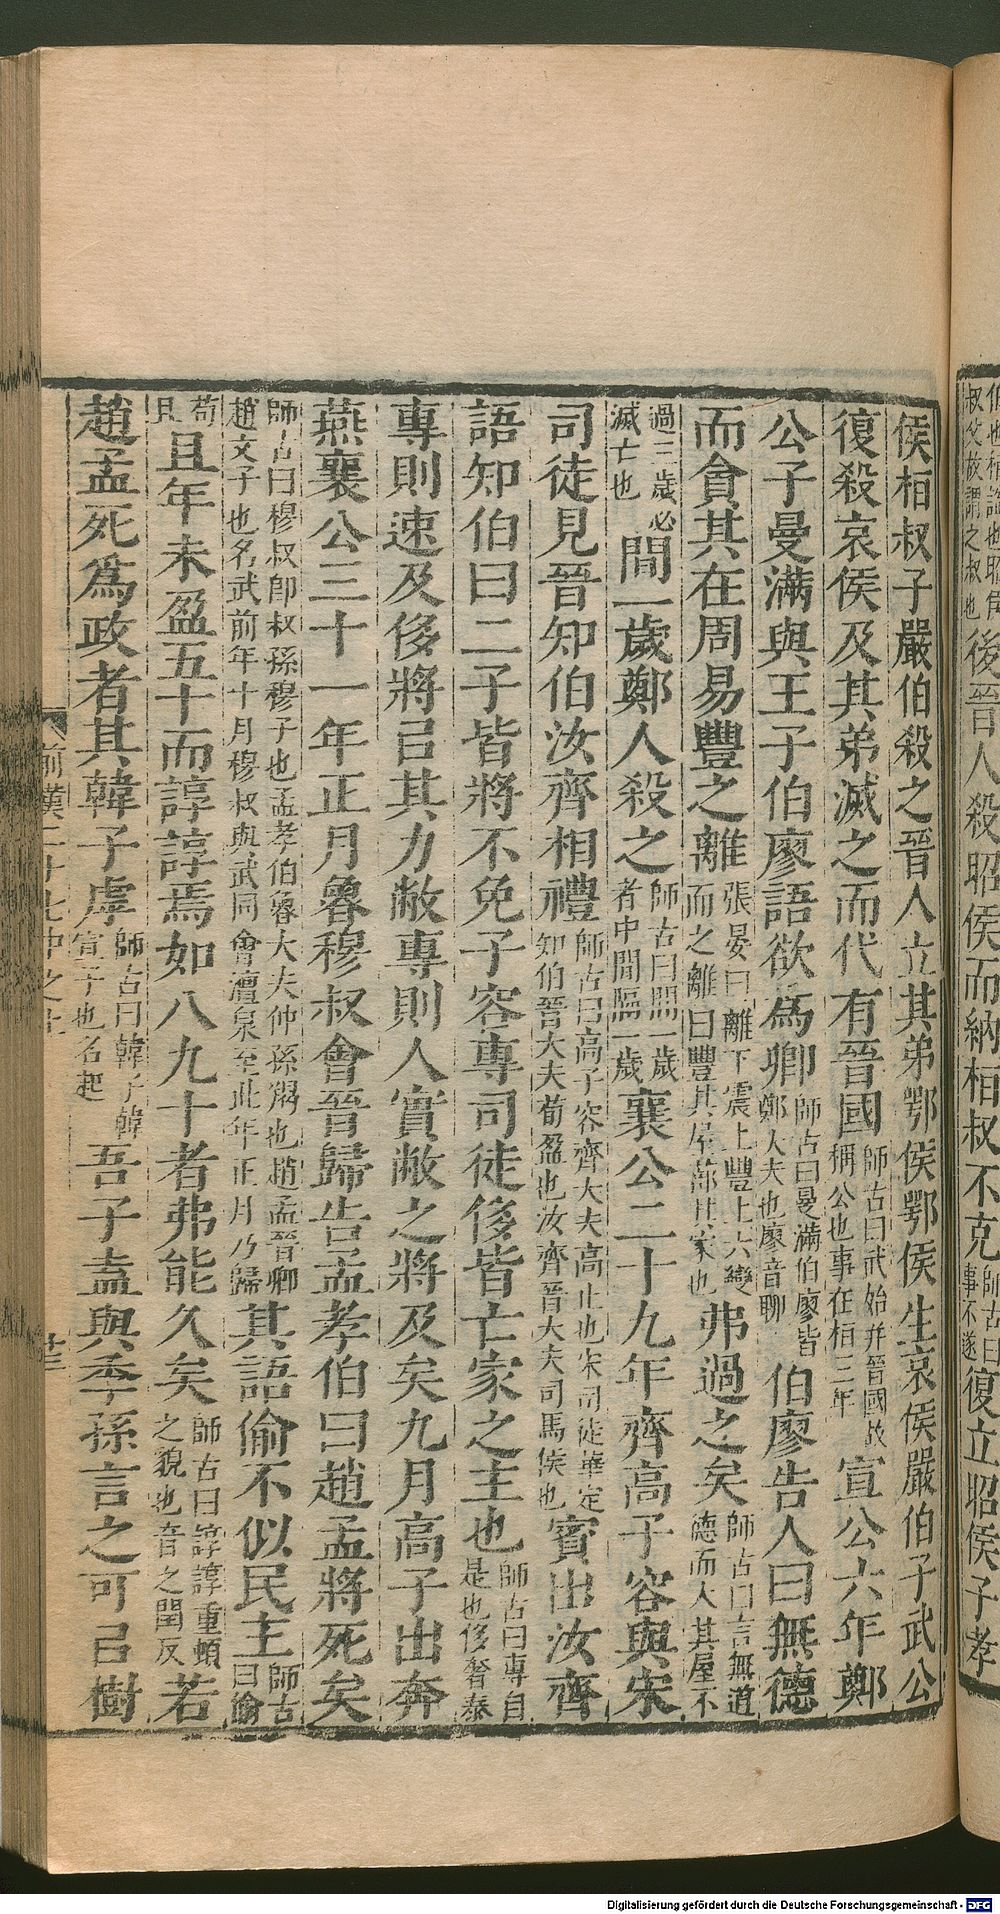 伯也桓諡也昭侯叔父故謂之叔也後晉人殺昭侯而納桓叔不克師古曰事不遂復立昭侯子孝
侯桓叔子嚴伯殺之晉人立其弟鄂侯鄂侯生哀侯嚴伯子武公
復殺哀侯及其弟滅之而代有晉國師古曰武始并晉國故稱公也事在桓三年宣公六年鄭
公子曼滿與王子伯廖語欲為卿師古曰曼滿伯廖皆鄭大夫也廖音聊伯廖告人曰無德
而貪其在周易豐之離張晏曰離下震上豐上六變而之離曰豐其屋蔀其家也弗過之矣師古曰言無道德而大其屋不
過三歲必滅亡也間一歲鄭人殺之師古曰間一歲者中間隔一歲襄公二十九年齊高子容與宋
司徒見晉知伯汝齊相禮師古曰高子容齊大夫高止也宋司徒華定知伯晉大夫荀盈也汝齊晉大夫司馬侯也賓出汝齊
語知伯曰二子皆將不免子容專司徒侈皆亡家之主也師古曰專自是也侈奢泰
專則速及侈將㠯其力敝專則人實敝之將及矣九月高子出奔
燕襄公三十一年正月魯穆叔會晉歸告孟孝伯曰趙孟將死矣
師古曰穆叔卽叔孫穆子也孟孝伯魯大夫仲孫羯也趙孟晉卿趙文子也名武前年十月穆叔與武同會澶泉至此年正月乃歸其語偷不似民主師古曰偷
苟且且年未盈五十而諄諄焉如八九十者弗能久矣師古曰諄諄重頓之貌也音之閏反若
趙孟死爲政者其韓子虖師古曰韓子韓宣子也名起吾子盍與季孫言之可㠯樹
前漢二十七中之上
Digitalisierung gefördert durch die Deutsche Forschungsgemeinschaft - DFG